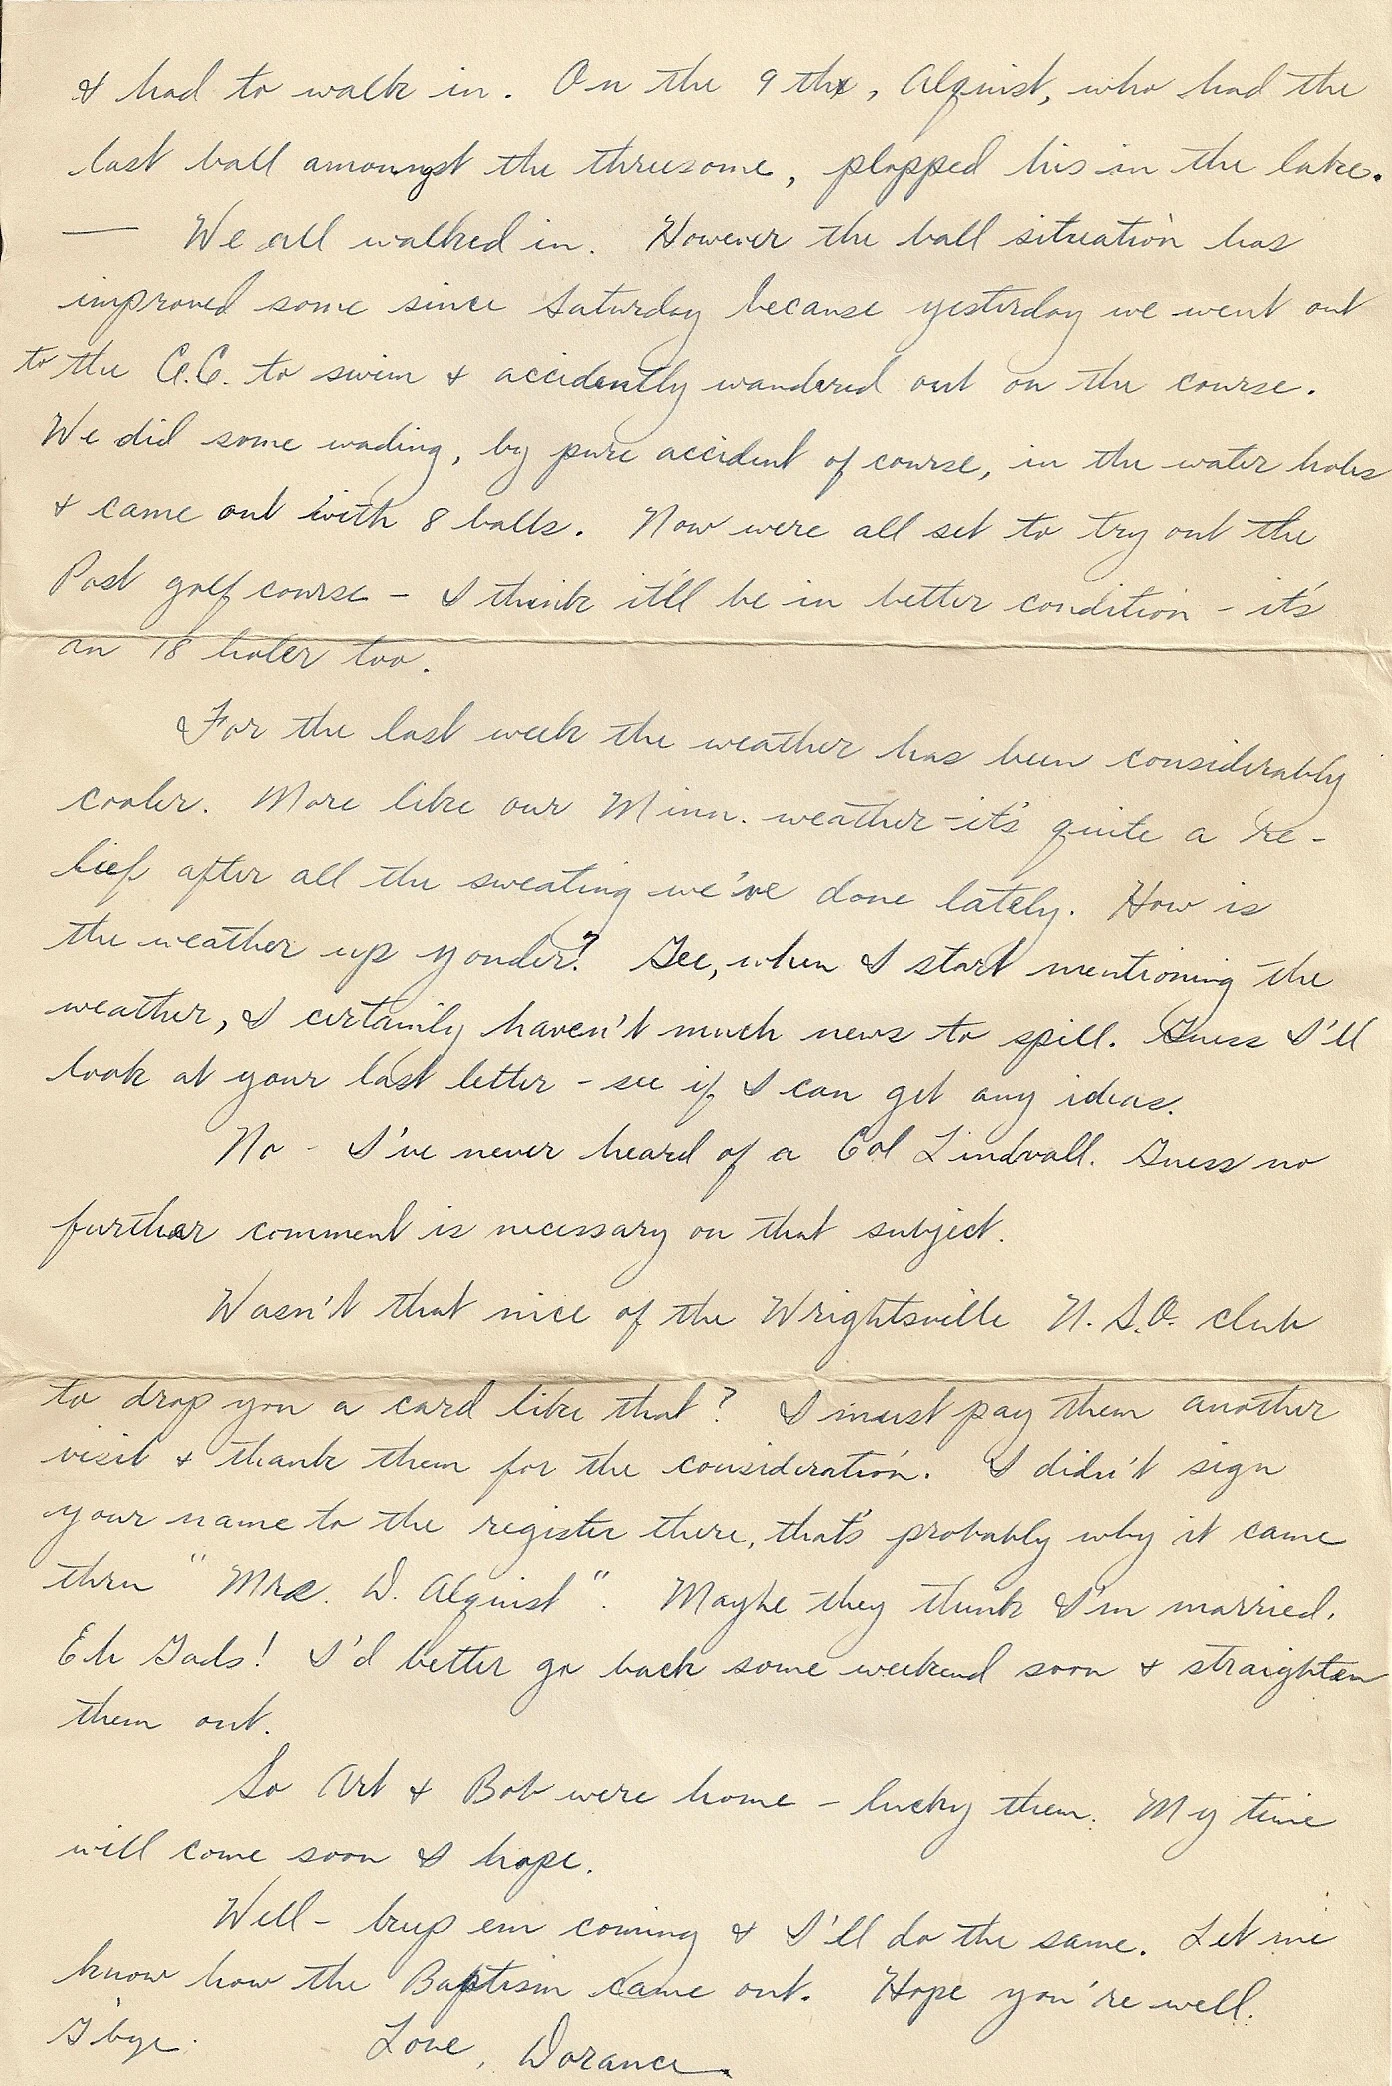 & had to walk in. On the 9th, Alquist, who had the
last ball amoungst the threesome, plopped his in the lake.
— We all walked in. However the ball situation has
improved some since Saturday because yesterday we went out
to the C.C. to swim & accidently wandered out on the course.
We did some wading, by pure accident of course, in the water holes
& came out with 8 balls. Now were all set to try out the
Post golf course – I think it'll be in better condition – it's
an 18 holer too.
For the last week the weather has been considerably
cooler. More like our Minn. weather – it's quite a re-
lief after all the sweating we've done lately. How is
the weather up yonder? Gee, when I start mentioning the
weather, I certainly haven't much news to spill. Guess I'll
look at your last letter – see if I can get any ideas.
No – I've never heard of a Col Lindvall. Guess no
further comment is necessary on that subject.
Wasn't that nice of the Wrightsville U.S.O. club
to drop you a card like that? I must pay them another
visit & thank them for the consideration. I didn't sign
your name to the register there, that's probably why it came
thru "Mrs. D. Alquist". Maybe they think I'm married.
Eh Gads! I'd better go back some weekend soon & straighten
them out.
So Art & Bob were home – lucky them. My time
will come soon I hope.
Well – keep em coming & I'll do the same. Let me
know how the Baptism came out. Hope you're well.
G'bye. Love, Dorance